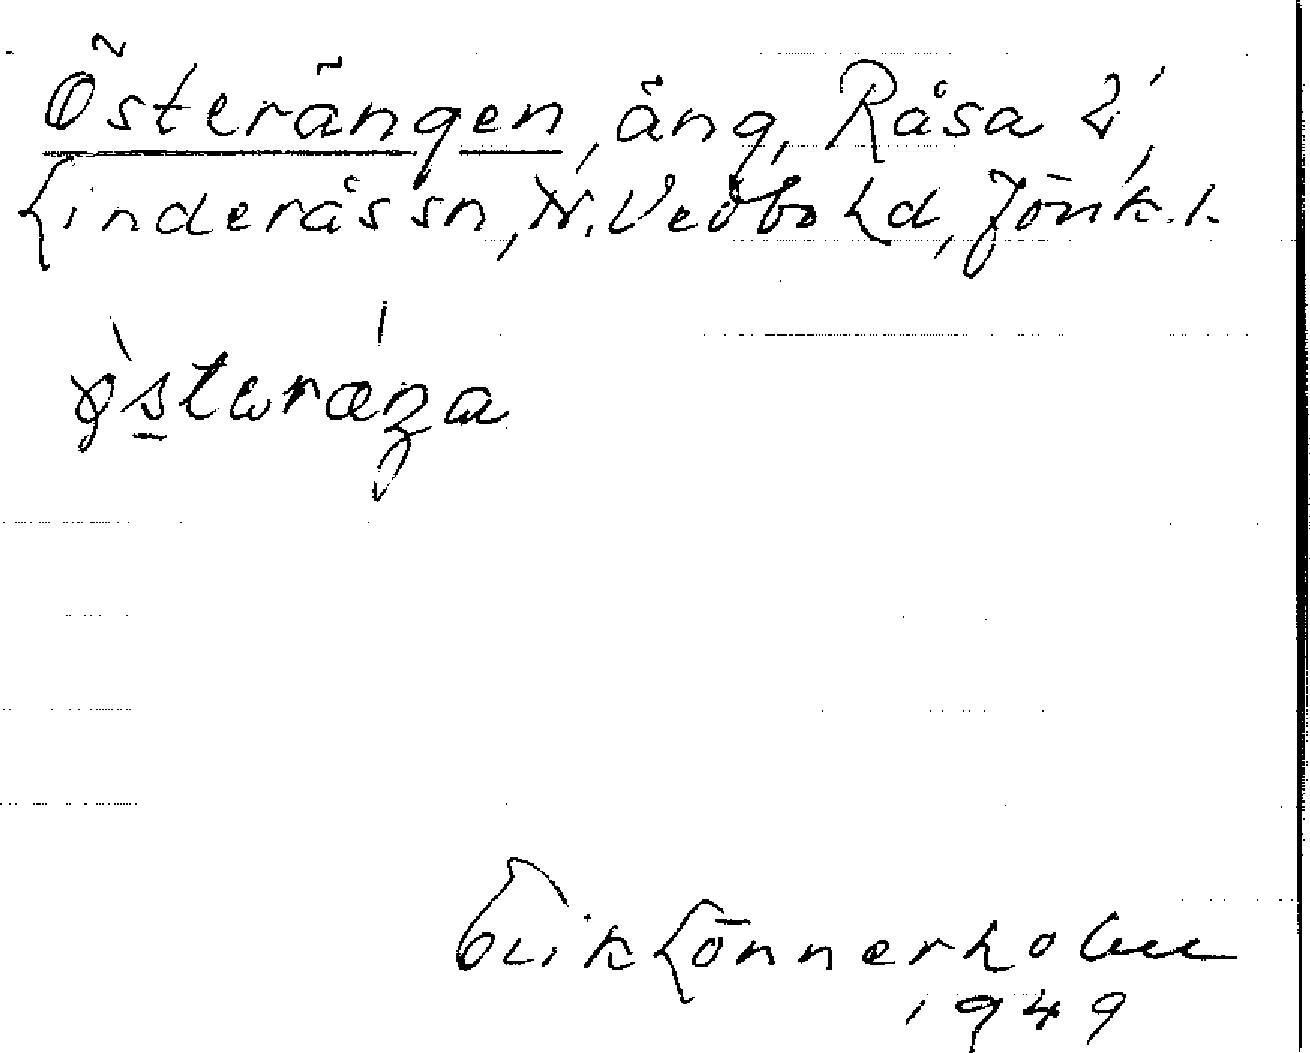 Österängen, äng, Råsa 2,
Linderås sn, N. Vedbo hd, Jönk. l.
Erik Lönnerholm
1949